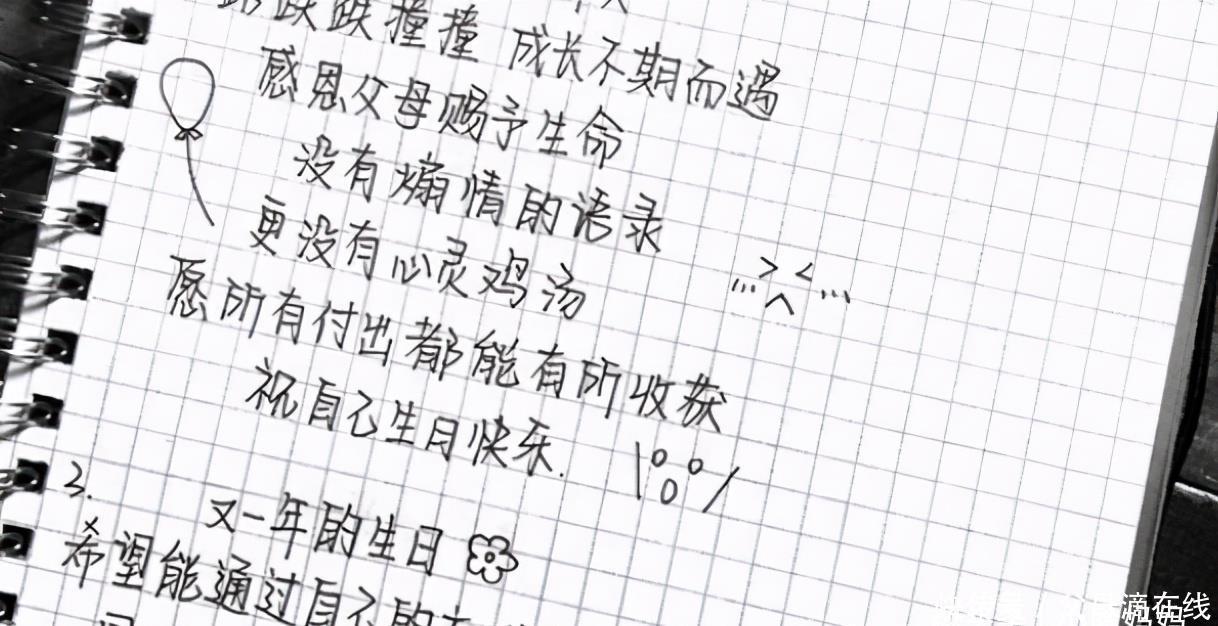 跌跌撞撞 成长不期而遇
感恩父母赐予生命
没有煽情的语录
更没有心灵鸡汤
愿所有付出都能有所收获
祝自己生日快乐.
3.
又一年的生日
希望能通过自己的
滴在线